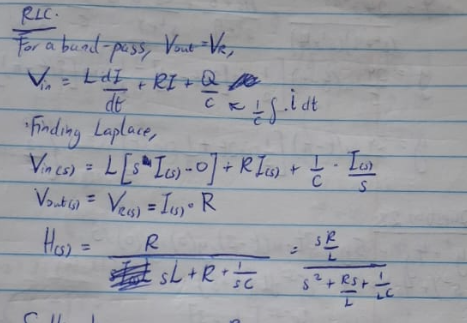 RLC.
For a band-pass, Vout = VR,
Vin = L dI/dt + RI + Q/C ← 1/C ∫ i dt
Finding Laplace,
Vin(s) = L[s I(s) - 0] + R I(s) + 1/C · I(s)/s
Vout(s) = VR(s) = I(s) · R
H(s) = R / (sL + R + 1/sC) = (sR/L) / (s² + Rs/L + 1/LC)